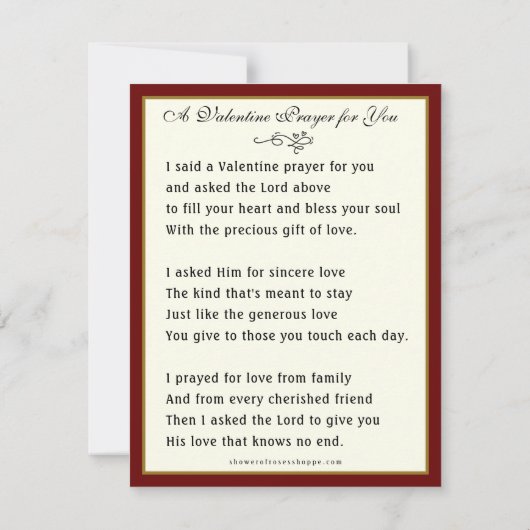 A Valentine Prayer for You
I said a Valentine prayer for you
and asked the Lord above
to fill your heart and bless your soul
With the precious gift of love.
I asked Him for sincere love
The kind that's meant to stay
Just like the generous love
You give to those you touch each day.
I prayed for love from family
And from every cherished friend
Then I asked the Lord to give you
His love that knows no end.
showerofrosesshoppe.com